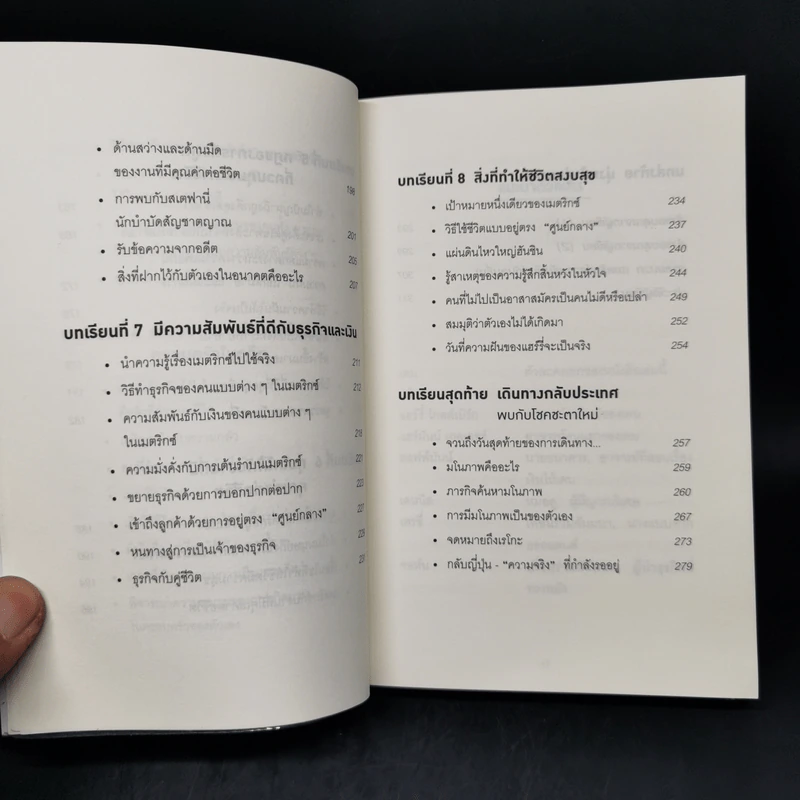 • ด้านสว่างและด้านมืด
ของงานที่มีคุณค่าต่อชีวิต 198
• การพบกับสเตฟานี่
นักบำบัดสัญชาตญาณ 201
• รับข้อความจากอดีต 205
• สิ่งที่ฝากไว้กับตัวเองในอนาคตคืออะไร 207
บทเรียนที่ 7 มีความสัมพันธ์ที่ดีกับธุรกิจและเงิน
• นำความรู้เรื่องเมตริกซ์ไปใช้จริง 211
• วิธีทำธุรกิจของคนแบบต่าง ๆ ในเมตริกซ์ 212
• ความสัมพันธ์กับเงินของคนแบบต่าง ๆ
ในเมตริกซ์ 219
• ความมั่งคั่งกับการเต้นรำบนเมตริกซ์ 221
• ขยายธุรกิจด้วยการบอกปากต่อปาก 223
• เข้าถึงลูกค้าด้วยการอยู่ตรง “ศูนย์กลาง”
• หนทางสู่การเป็นเจ้าของธุรกิจ
• ธุรกิจกับคู่ชีวิต
บทเรียนที่ 8 สิ่งที่ทำให้ชีวิตสงบสุข
• เป้าหมายหนึ่งเดียวของเมตริกซ์ 234
• วิธีใช้ชีวิตแบบอยู่ตรง “ศูนย์กลาง” 237
• แผ่นดินไหวใหญ่ฮันชิน 240
• รู้สาเหตุของความรู้สึกสิ้นหวังในหัวใจ 244
• คนที่ไม่ไปเป็นอาสาสมัครเป็นคนไม่ดีหรือเปล่า 249
• สมมุติว่าตัวเองไม่ได้เกิดมา 252
• วันที่ความฝันของแฮร์รี่จะเป็นจริง 254
บทเรียนสุดท้าย เดินทางกลับประเทศ
พบกับโชคชะตาใหม่
• จวนถึงวันสุดท้ายของการเดินทาง... 257
• มโนภาพคืออะไร 259
• ภารกิจค้นหามโนภาพ 260
• การมีมโนภาพเป็นของตัวเอง 267
• จดหมายถึงเรโกะ 273
• กลับญี่ปุ่น - “ความจริง” ที่กำลังรออยู่ 279